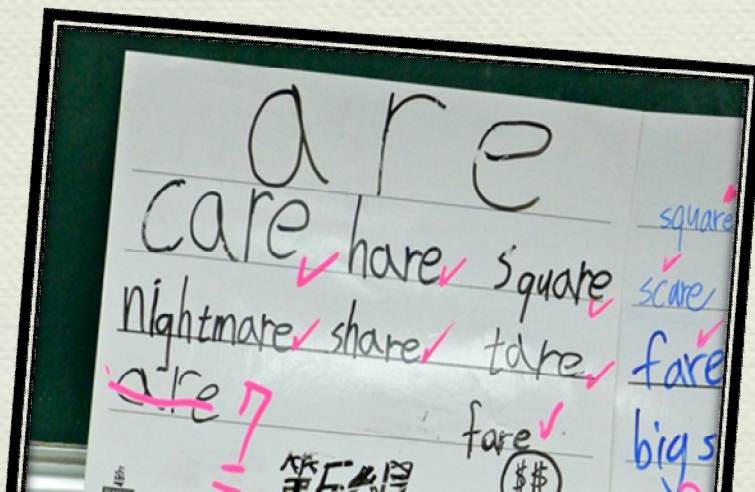 are
care hare square
nightmare share tare
are 7
fare
$$
square
scare
fare
big s